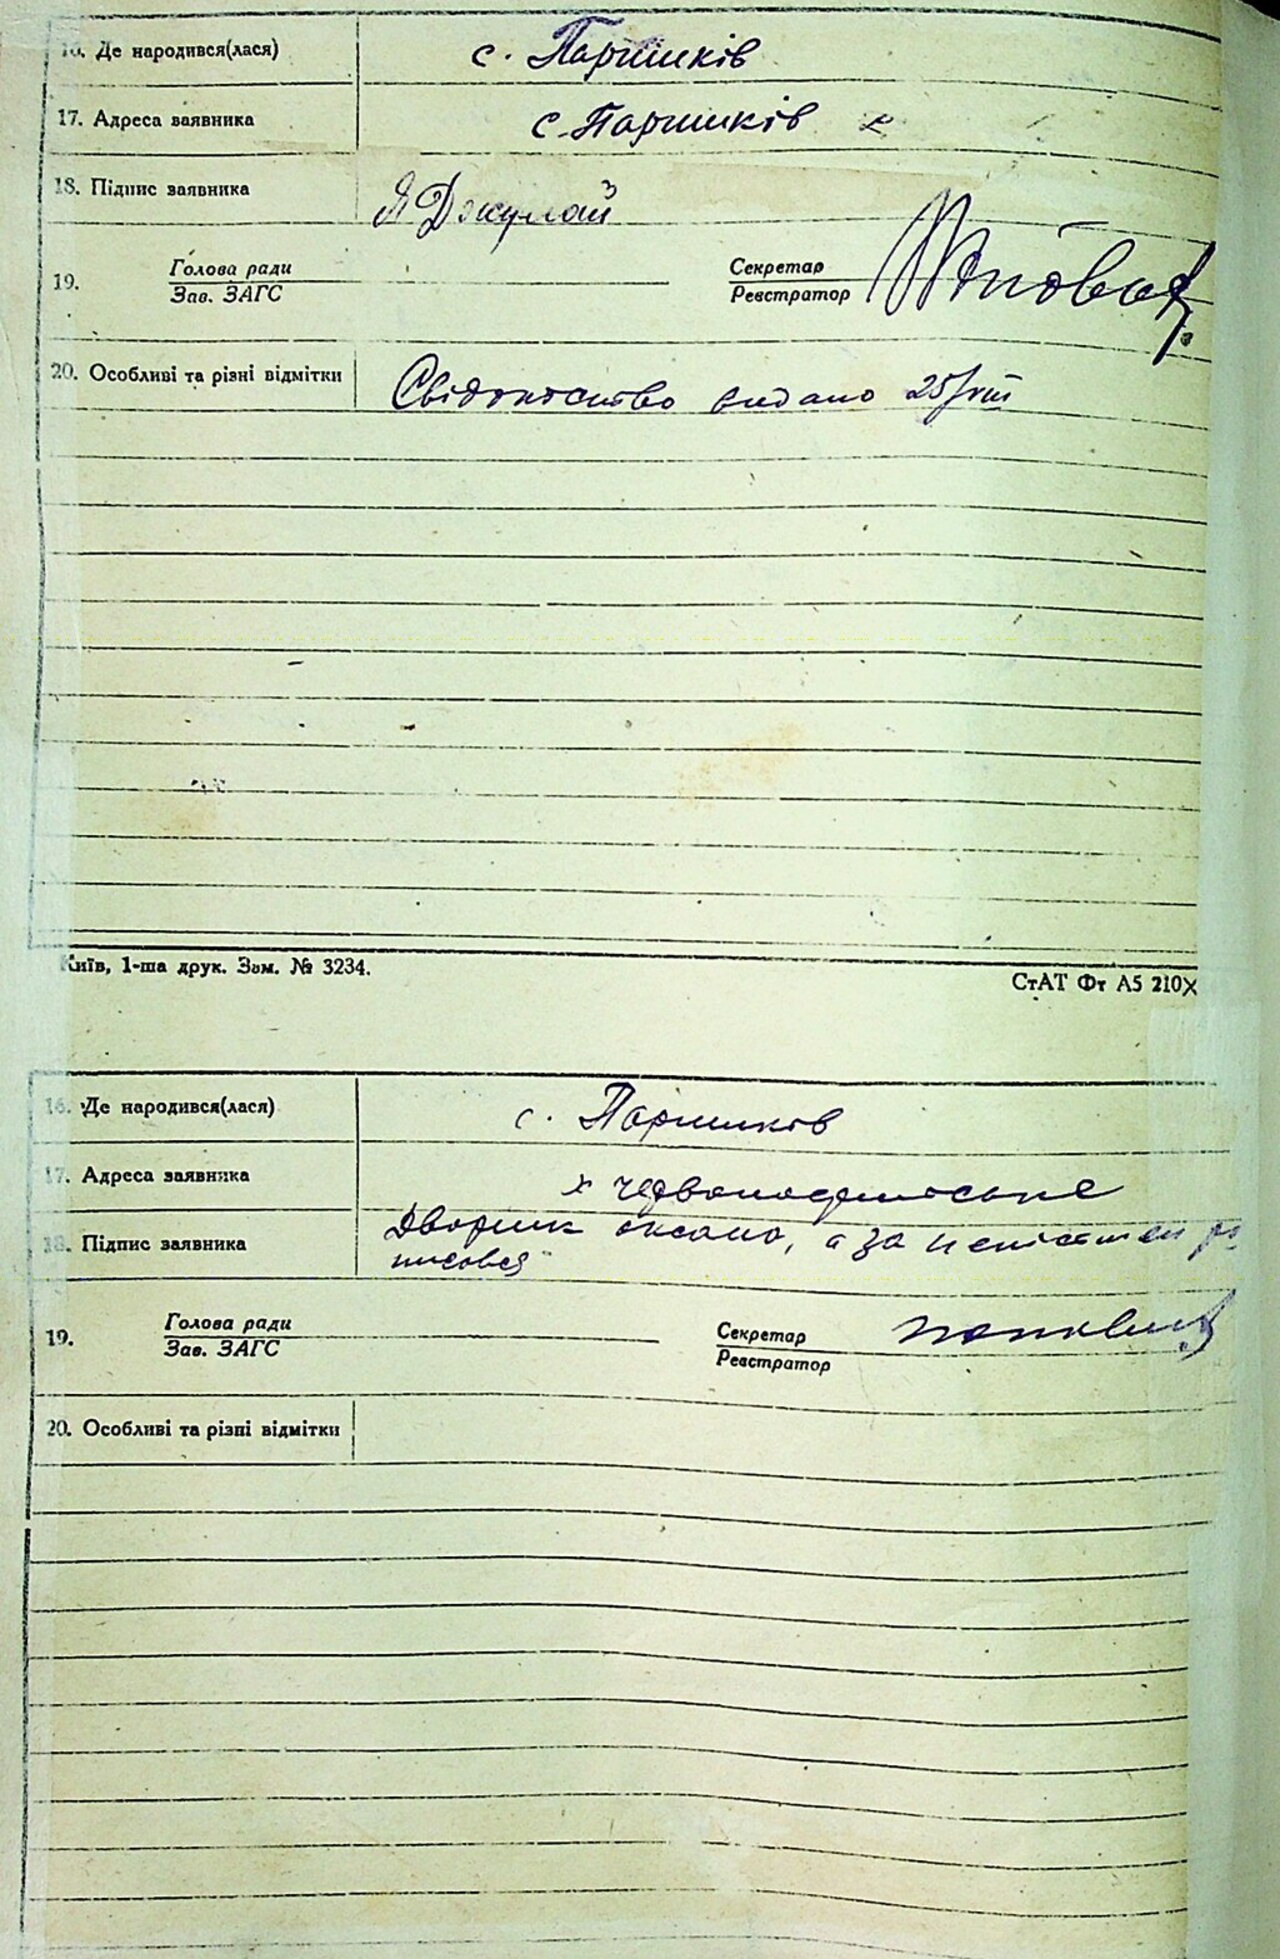 16. Де народився(лася) с. Паришків
17. Адреса заявника с. Паришків
18. Підпис заявника Я Джулай
19. Голова ради Секретар
Зав. ЗАГС Реєстратор
20. Особливі та різні відмітки Свідоцтво видано 25/VIII
Київ, 1-ша друк. Зам. № 3234.
СтАТ Фт А5 210X
16. Де народився(лася) с. Паришків
17. Адреса заявника х
18. Підпис заявника Дворник оксана, а за
писався
19. Голова ради Секретар
Зав. ЗАГС Реєстратор
20. Особливі та різні відмітки